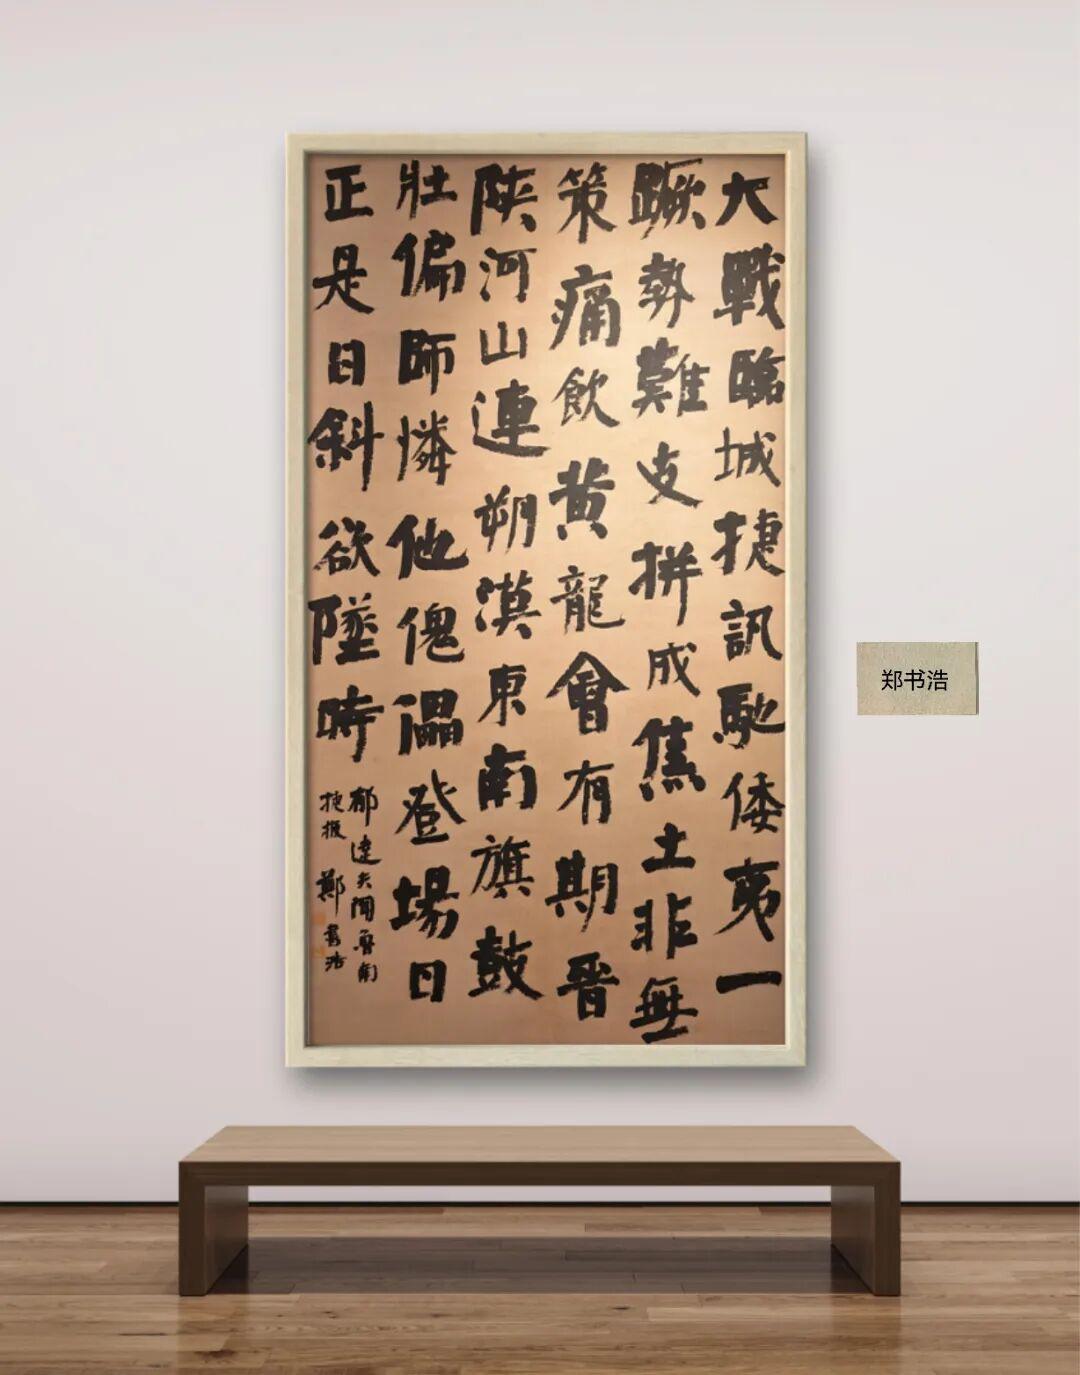 大戰臨城捷訊馳倭夷一
蹶勢難支拼成焦土非無
策痛飲黄龍會有期晉
陝河山連朔漠東南旗鼓
壯偏師憐他傀儡登場日
正是日斜欲墜時
郁達夫聞魯南
捷报 鄭書浩
郑书浩